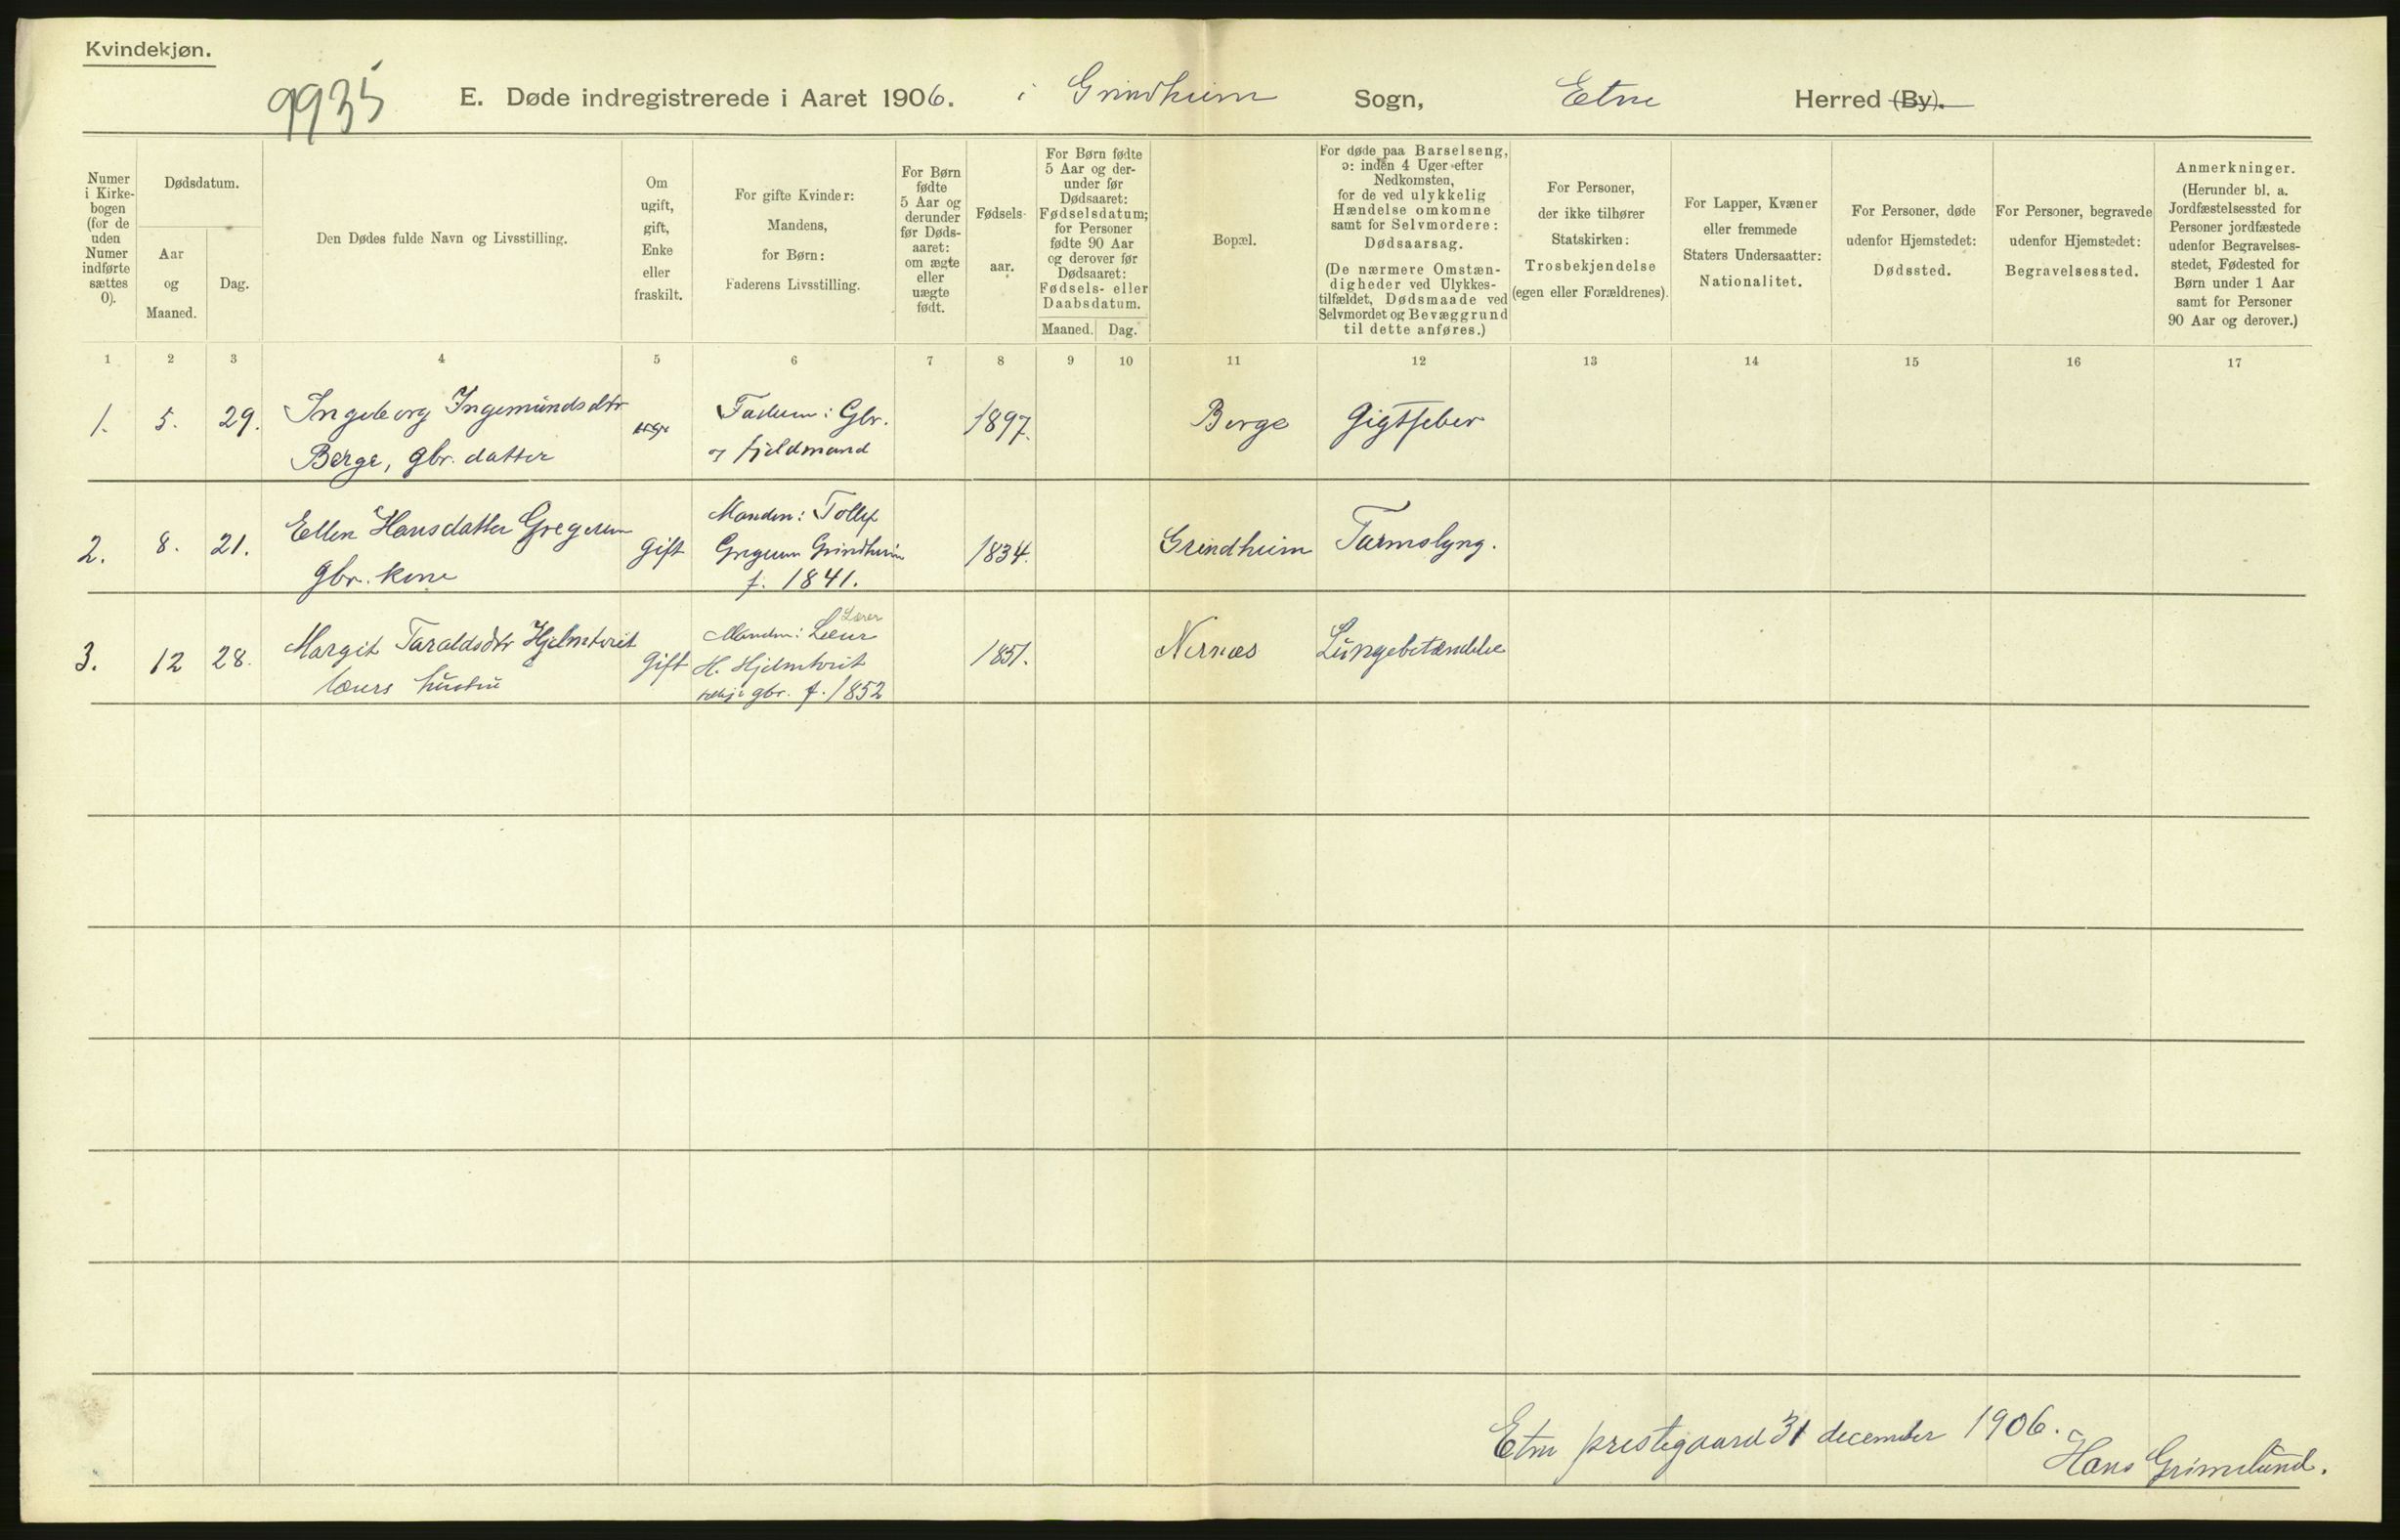 Kvindekjøn.
9935
E. Døde indregistrerede i Aaret 1906. i Grindheim Sogn, Etne Herred (By).
Numer i Kirkebogen (for de uden Numer indførte sættes 0).
Dødsdatum.
Aar og Maaned.
Dag.
Den Dødes fulde Navn og Livsstilling.
Om ugift, gift, Enke eller fraskilt.
For gifte Kvinder: Mandens, for Børn: Faderens Livsstilling.
For Børn fødte 5 Aar og derunder før Dødsaaret: om ægte eller uægte født.
Fødselsaar.
For Børn fødte 5 Aar og derunder før Dødsaaret: Fødselsdatum; for Personer fødte 90 Aar og derover før Dødsaaret: Fødsels- eller Daabsdatum.
Maaned. Dag.
Bopæl.
For døde paa Barselseng, ɔ: inden 4 Uger efter Nedkomsten, for de ved ulykkelig Hændelse omkomne samt for Selvmordere: Dødsaarsag.
(De nærmere Omstændigheder ved Ulykkestilfældet, Dødsmaade ved Selvmordet og Bevæggrund til dette anføres.)
For Personer, der ikke tilhører Statskirken: Trosbekjendelse (egen eller Forældrenes).
For Lapper, Kvæner eller fremmede Staters Undersaatter: Nationalitet.
For Personer, døde udenfor Hjemstedet: Dødssted.
For Personer, begravede udenfor Hjemstedet: Begravelsessted.
Anmerkninger.
(Herunder bl. a. Jordfæstelsessted for Personer jordfæstede udenfor Begravelsesstedet, Fødested for Børn under 1 Aar samt for Personer 90 Aar og derover.)
1 2 3 4 5 6 7 8 9 10 11 12 13 14 15 16 17
1. 5. 29. Ingeborg Ingemundsdtr Faderen: Gbr. 1897. Berge Gigtfeber
Berge, gbr. datter og fjeldmand
2. 8. 21. Ellen Hansdatter Gregersen gift Manden: Tollef 1834. Grindheim Tarmslyng.
gbr. kone Gregersen Grindheim
f. 1841.
Lærer
3. 12 28. Margit Taraldsdtr Hjelmtveit gift Manden: Lærer 1851. Nernæs Lungebetændelse
lærers hustru H. Hjelmtveit
gbr. f. 1852
Etne prestegaard 31 december 1906.
Hans Grimelund.